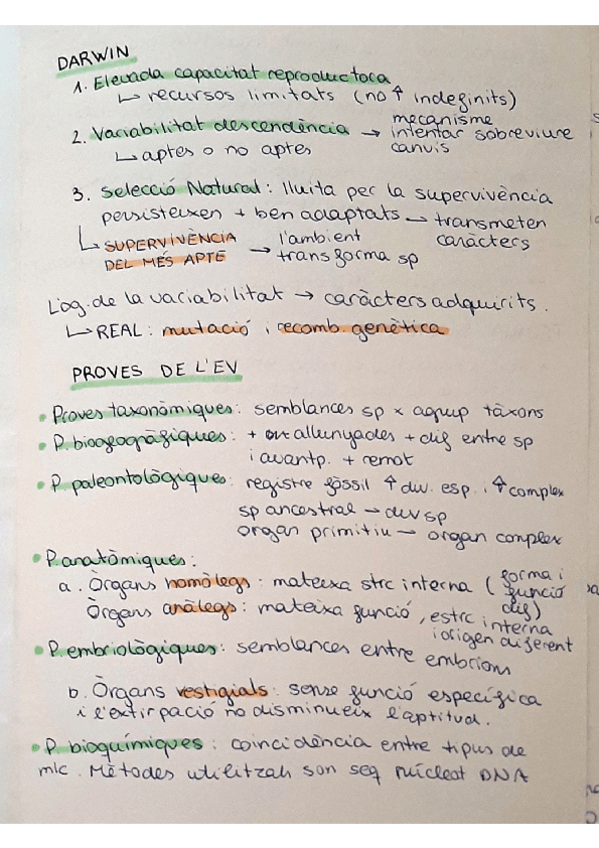 DARWIN
1. Elevada capacitat reproductora
↳ recursos limitats (no ↑ indefinits)
2. Variabilitat descendència → mecanisme intentar sobreviure canvis
↳ aptes o no aptes
3. Selecció Natural: lluita per la supervivència
persisteixen + ben adaptats → transmeten caràcters
↳ SUPERVIVÈNCIA DEL MÉS APTE → l'ambient transforma sp
L'og. de la variabilitat → caràcters adquirits.
↳ REAL: mutació i recomb. genètica
PROVES DE L'EV
• Proves taxonòmiques: semblances sp x agrup tàxons
• P. biogeogràfiques: + allunyades + dif entre sp
i avantp. + remot
• P. paleontològiques: registre fòssil ↑ div. esp. i ↑ complex
sp ancestral → div sp
organ primitiu → organ complex
• P. anatòmiques:
a. Òrgans homòlegs: mateixa strc interna (forma i funció dif)
Òrgans anàlegs: mateixa funció, estrc interna i origen diferent
• P. embriològiques: semblances entre embrions
b. Òrgans vestigials: sense funció específica
i l'extirpació no disminueix l'aptitud.
• P. bioquímiques: coincidència entre tipus de
mlc. Mètodes utilitzats son seq núcleot DNA